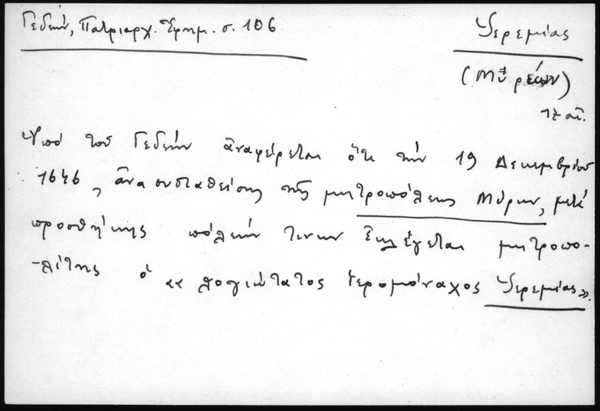 Γεδεών, Πατριαρχ. Ἐφημ. σ. 106
Ἱερεμίας
(Μυρέων)
17 αἰ.
Ὑπό τοῦ Γεδεών ἀναφέρεται ὅτι τήν 19 Δεκεμβρίου
1646, ἀνασυσταθείσης τῆς μητροπόλεως Μύρων, μετά
προσθήκης πόλεών τινων ἐκλέγεται μητροπο-
-λίτης ὁ «λογιώτατος ἱερομόναχος Ἱερεμίας».